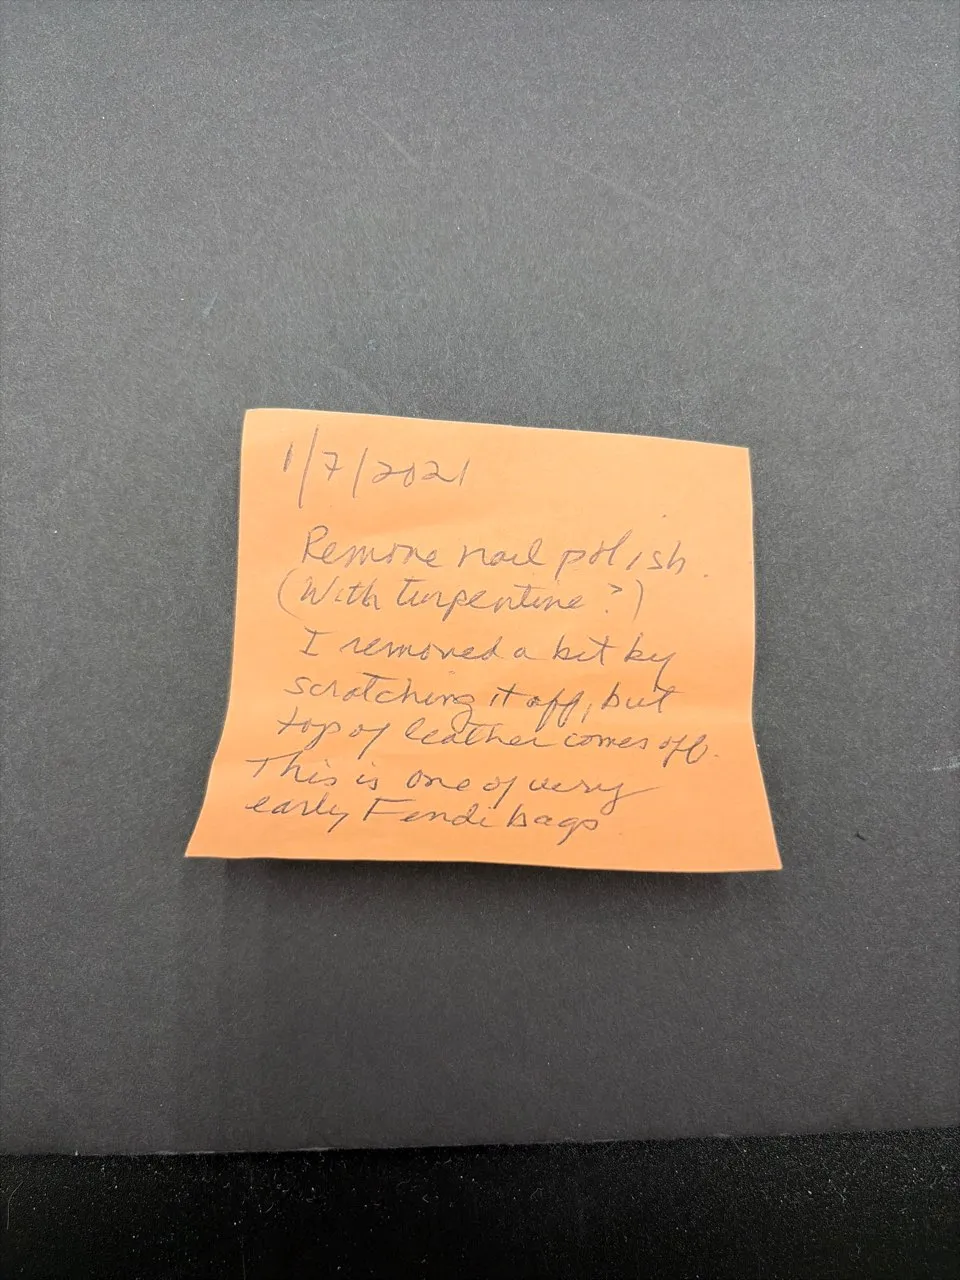 1/7/2021
Remove nail polish.
(With turpentine?)
I removed a bit by
scratching it off, but
top of leather comes off.
This is one of very
early Fendi bags